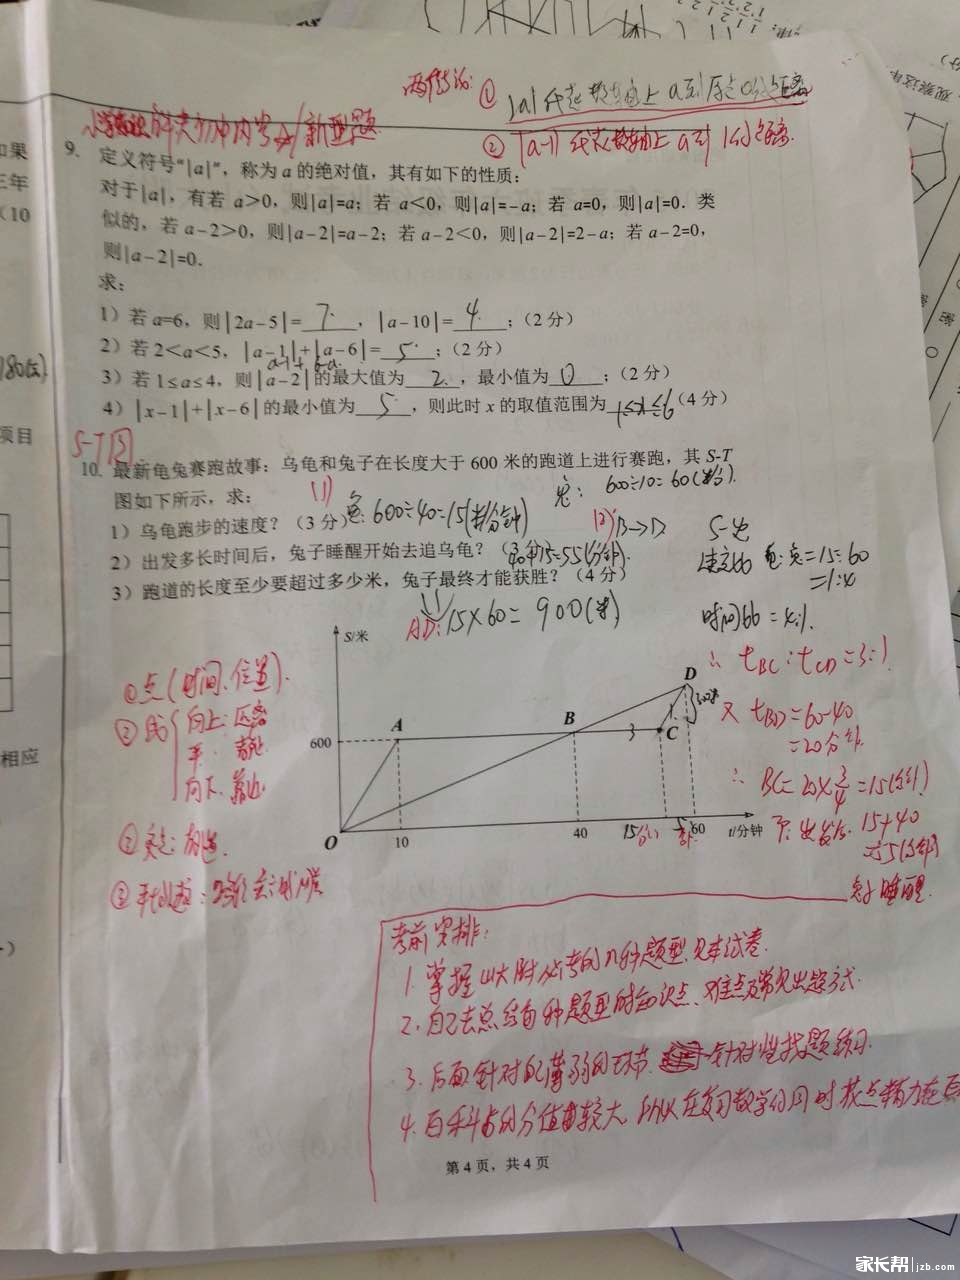 两结论: ① |a|代表数轴上a到原点0的距离
② |a-1|代表数轴上a到1的距离.
小学知识解决初中内容/新型题
9. 定义符号“|a|”，称为 a 的绝对值，其有如下的性质：
对于|a|，有若 a＞0，则|a|=a；若 a＜0，则|a|=－a；若 a=0，则|a|=0．类
似的，若 a－2＞0，则|a－2|=a－2；若 a－2＜0，则|a－2|=2－a；若 a－2=0，
则|a－2|=0．
求：
1）若 a=6，则|2a－5|=7，|a－10|=4；（2 分）
2）若 2＜a＜5，|a－1|+|a－6|=5；（2 分）
a-1+6-a
3）若 1≤a≤4，则|a－2|的最大值为2，最小值为0；（2 分）
4）|x－1|+|x－6|的最小值为5，则此时 x 的取值范围为1≤x≤6（4 分）
S-T图
10. 最新龟兔赛跑故事：乌龟和兔子在长度大于 600 米的跑道上进行赛跑，其 S-T
图如下所示，求：
(1) 龟:600÷40=15(米/分钟)
兔: 600÷10=60(米/分).
1）乌龟跑步的速度？（3 分）
(2) B→D
2）出发多长时间后，兔子睡醒开始去追乌龟？（3 分）
40+15=55(分钟).
3）跑道的长度至少要超过多少米，兔子最终才能获胜？（4 分）
15×60=900(米)
S-定
速度比 龟:兔=15:60
=1:4
时间比=4:1.
∴ tBC:tCD=3:1
又 tBD=60-40
=20分钟.
∴ BC=20×3/4=15(分钟)
即:出发后 15+40
=55(分钟)
兔子睡醒.
①点(时间、位置).
②线
向上:
平:
向下:
S/米
600
A
B
C
D
3
1
300米
O
10
40
15分
5分
60
t/分钟
考前安排:
1. 掌握山大附必考的几种题型,见本试卷.
2. 自己去总结每种题型的知识点、难点及常见出题方式.
3. 后面针对自己薄弱的环节 针对性找题练习.
4. 百科占的分值较大,所以在复习数学的同时花点精力在百
第 4 页，共 4 页
如果
三年
（10
180(元)
项目
相应
观察这串
家长帮 jzb.com